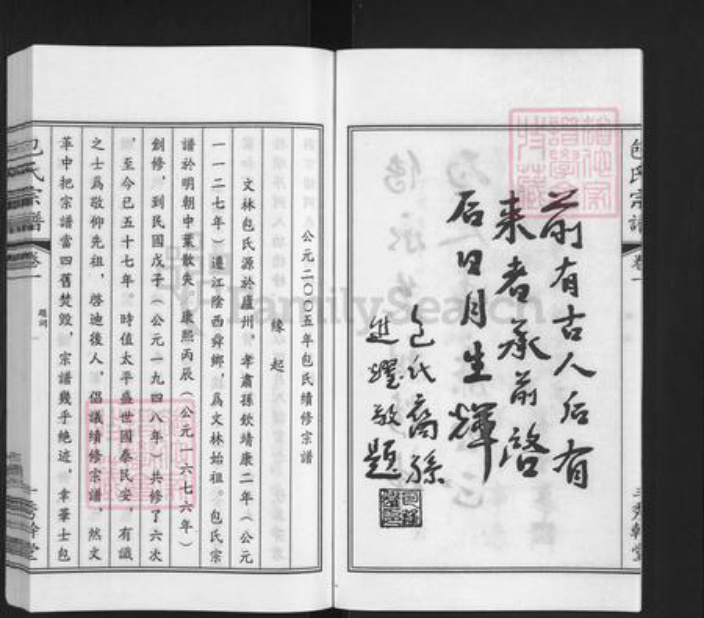 包氏宗譜
卷一
前有古人后有
来者承前啓
后日月生輝
包氏裔孫
進躍敬題
公元二〇〇五年包氏續修宗譜
緣起
文林包氏源於廬州，孝肅孫欽靖康二年（公元
一一二七年）遷江陰西舜鄉，爲文林始祖。包氏宗
譜於明朝中葉散失。康熙丙辰（公元一六七六年）
創修，到民國戊子（公元一九四八年）共修了六次
，至今已五十七年。時值太平盛世國泰民安，有識
之士爲敬仰先祖，啓迪後人，倡議續修宗譜，然文
革中把宗譜當四舊焚毀，宗譜幾乎絶迹，幸華士包
包氏宗譜
卷一
題詞
FamilySearch